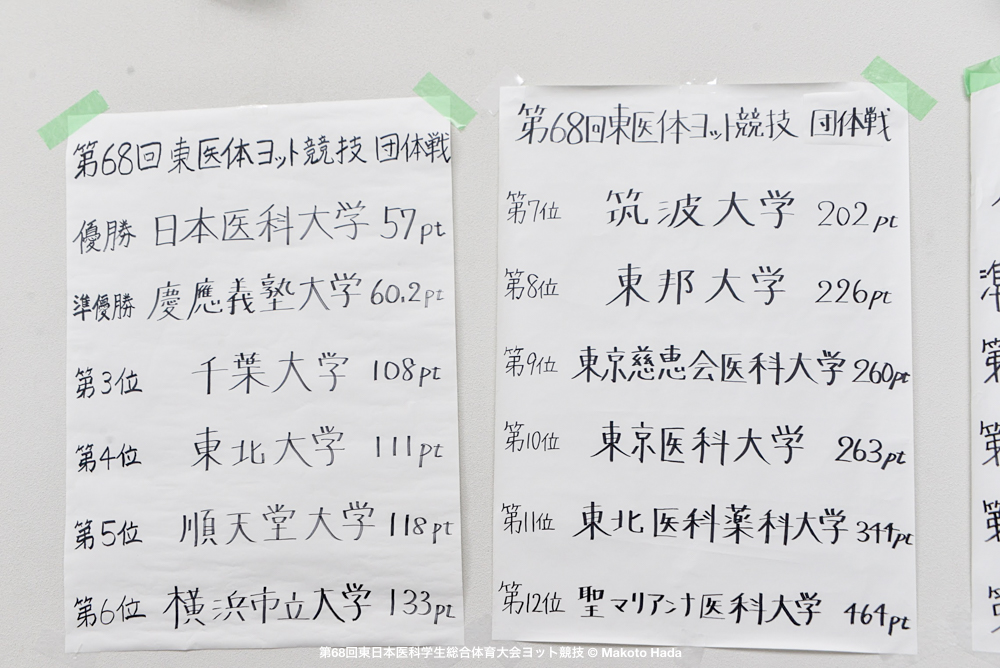 第68回東医体ヨット競技 団体戦
優勝 日本医科大学 57pt
準優勝 慶應義塾大学 60.2pt
第3位 千葉大学 108pt
第4位 東北大学 111pt
第5位 順天堂大学 118pt
第6位 横浜市立大学 133pt
第68回東医体ヨット競技 団体戦
第7位 筑波大学 202pt
第8位 東邦大学 226pt
第9位 東京慈恵会医科大学 260pt
第10位 東京医科大学 263pt
第11位 東北医科薬科大学 344pt
第12位 聖マリアンナ医科大学 464pt
第68回東日本医科学生総合体育大会ヨット競技 © Makoto Hada